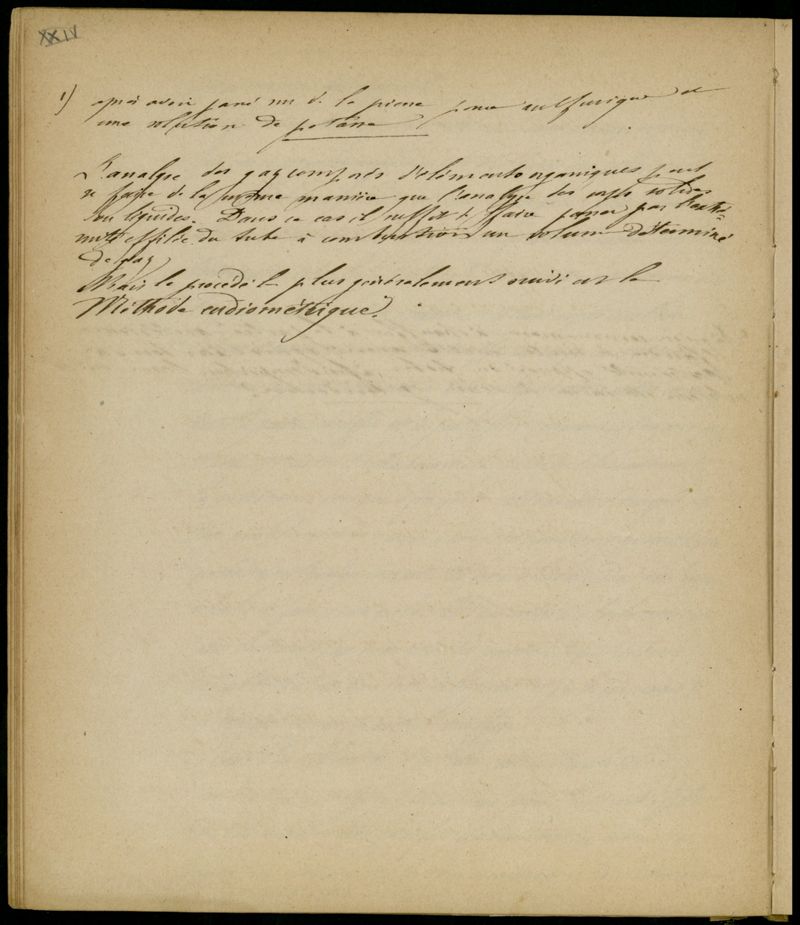 XXIV
1) après avoir passé sur de la pierre ponce sulfurique et
une solution de potasse
L'analyse des gaz composés d'éléments organiques peut
se faire de la même manière que l'analyse des corps solides
ou liquides. Dans ce cas il suffit de faire passer par l'extré=
mité effilée du tube à combustion un volume déterminé
de gaz
Mais le procédé le plus généralement suivi est la
Méthode eudiométrique.